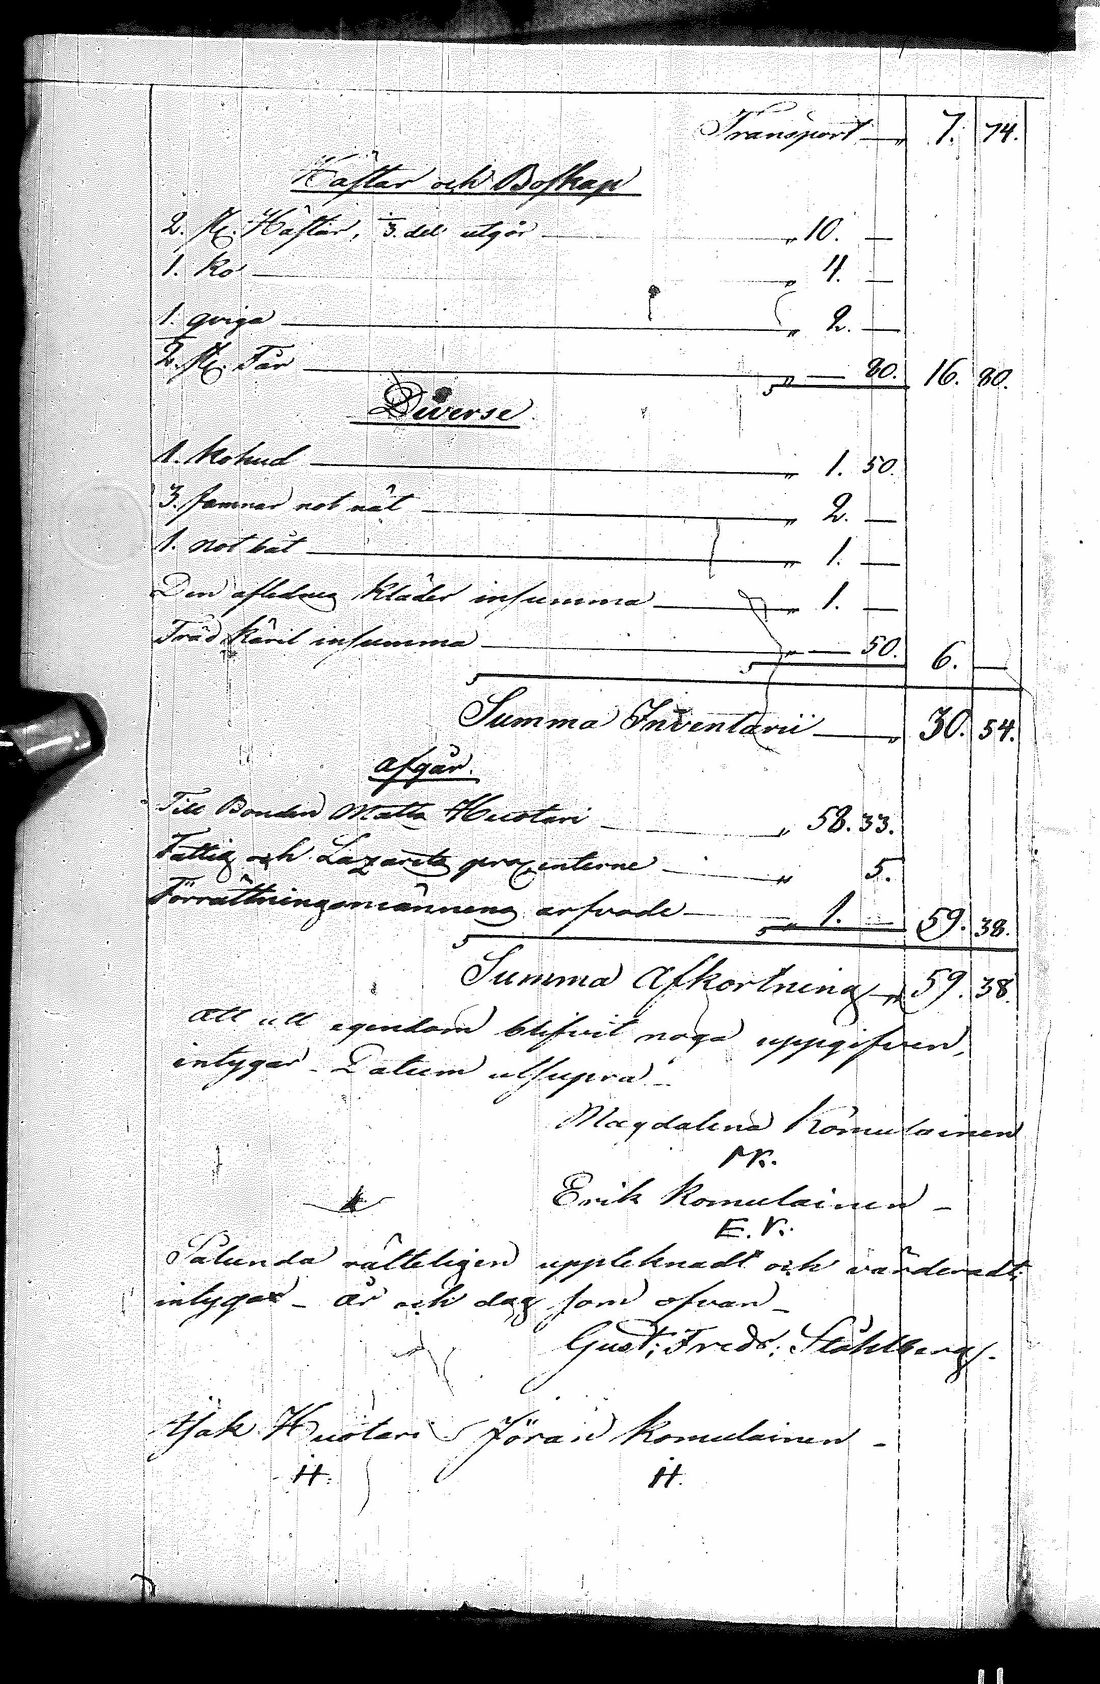 Transport — " 7. 74.
Hästar och Boskap
2. st. Hästar, 1/3. del utgör — " 10. —
1. Ko — " 4. —
1. qviga — " 2. —
2. st. Får — " — 80. 16. 80.
Diverse
1. kohud — " 1. 50.
3. famnar not nät — " 2. —
1. not båt — " 1. —
Den aflednes kläder insumma — " 1. —
Träd käril insumma — " — 50. 6. —
Summa Inventarii — " 30. 54.
Afgår.
Till Bonden Matts Huotari — " 58. 33.
Fattig och Lazaretts procenterne — " 5.
Förrättningsmännens arfvode — " 1. — 59. 38.
Summa Afkortning — " 59. 38.
Att all egendom blifvit noga uppgifven,
intygar. Datum utsupra.
Magdalena Komulainen
Erik Komulainen
E. K.
Sålunda rätteligen uppteknadt och värderadt;
intygar — År och dag som ofvan —
Gust: Fredr: Ståhlberg.
Isak Huotari Jöran Komulainen
H. H.